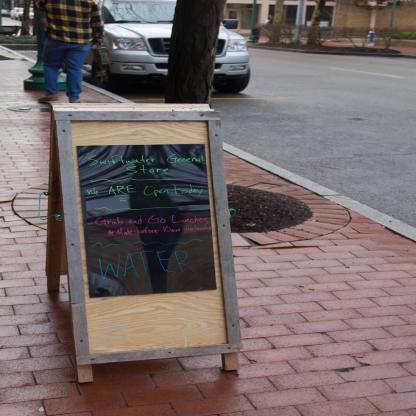 Swiftwater General
Store
We ARE Open today
Grab and Go Lunches
Made before 10am
WATER